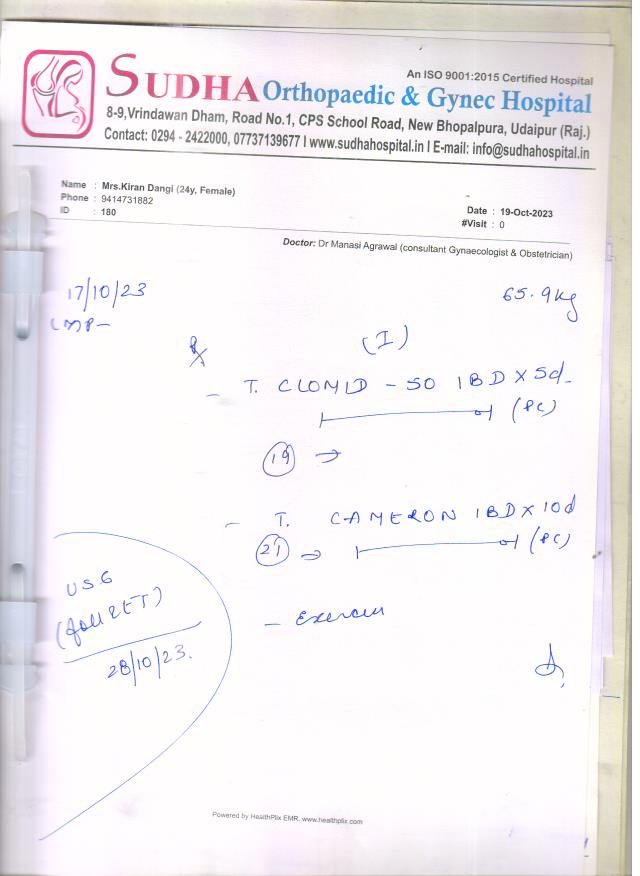 SUDHA Orthopaedic & Gynec Hospital
An ISO 9001:2015 Certified Hospital
8-9,Vrindawan Dham, Road No.1, CPS School Road, New Bhopalpura, Udaipur (Raj.)
Contact: 0294 - 2422000, 07737139677 I www.sudhahospital.in I E-mail: info@sudhahospital.in
Name : Mrs.Kiran Dangi (24y, Female)
Phone : 9414731882
ID : 180
Date : 19-Oct-2023
#Visit : 0
Doctor: Dr Manasi Agrawal (consultant Gynaecologist & Obstetrician)
17/10/23
65.9kg
LMP-
Rx
(I)
- T. CLOMID - 50 1BD X 5d
(PC)
19 →
- T. CAMERON 1BD X 10d
21 → (PC)
USG
28/10/23.
Powered by HealthPlix EMR. www.healthplix.com